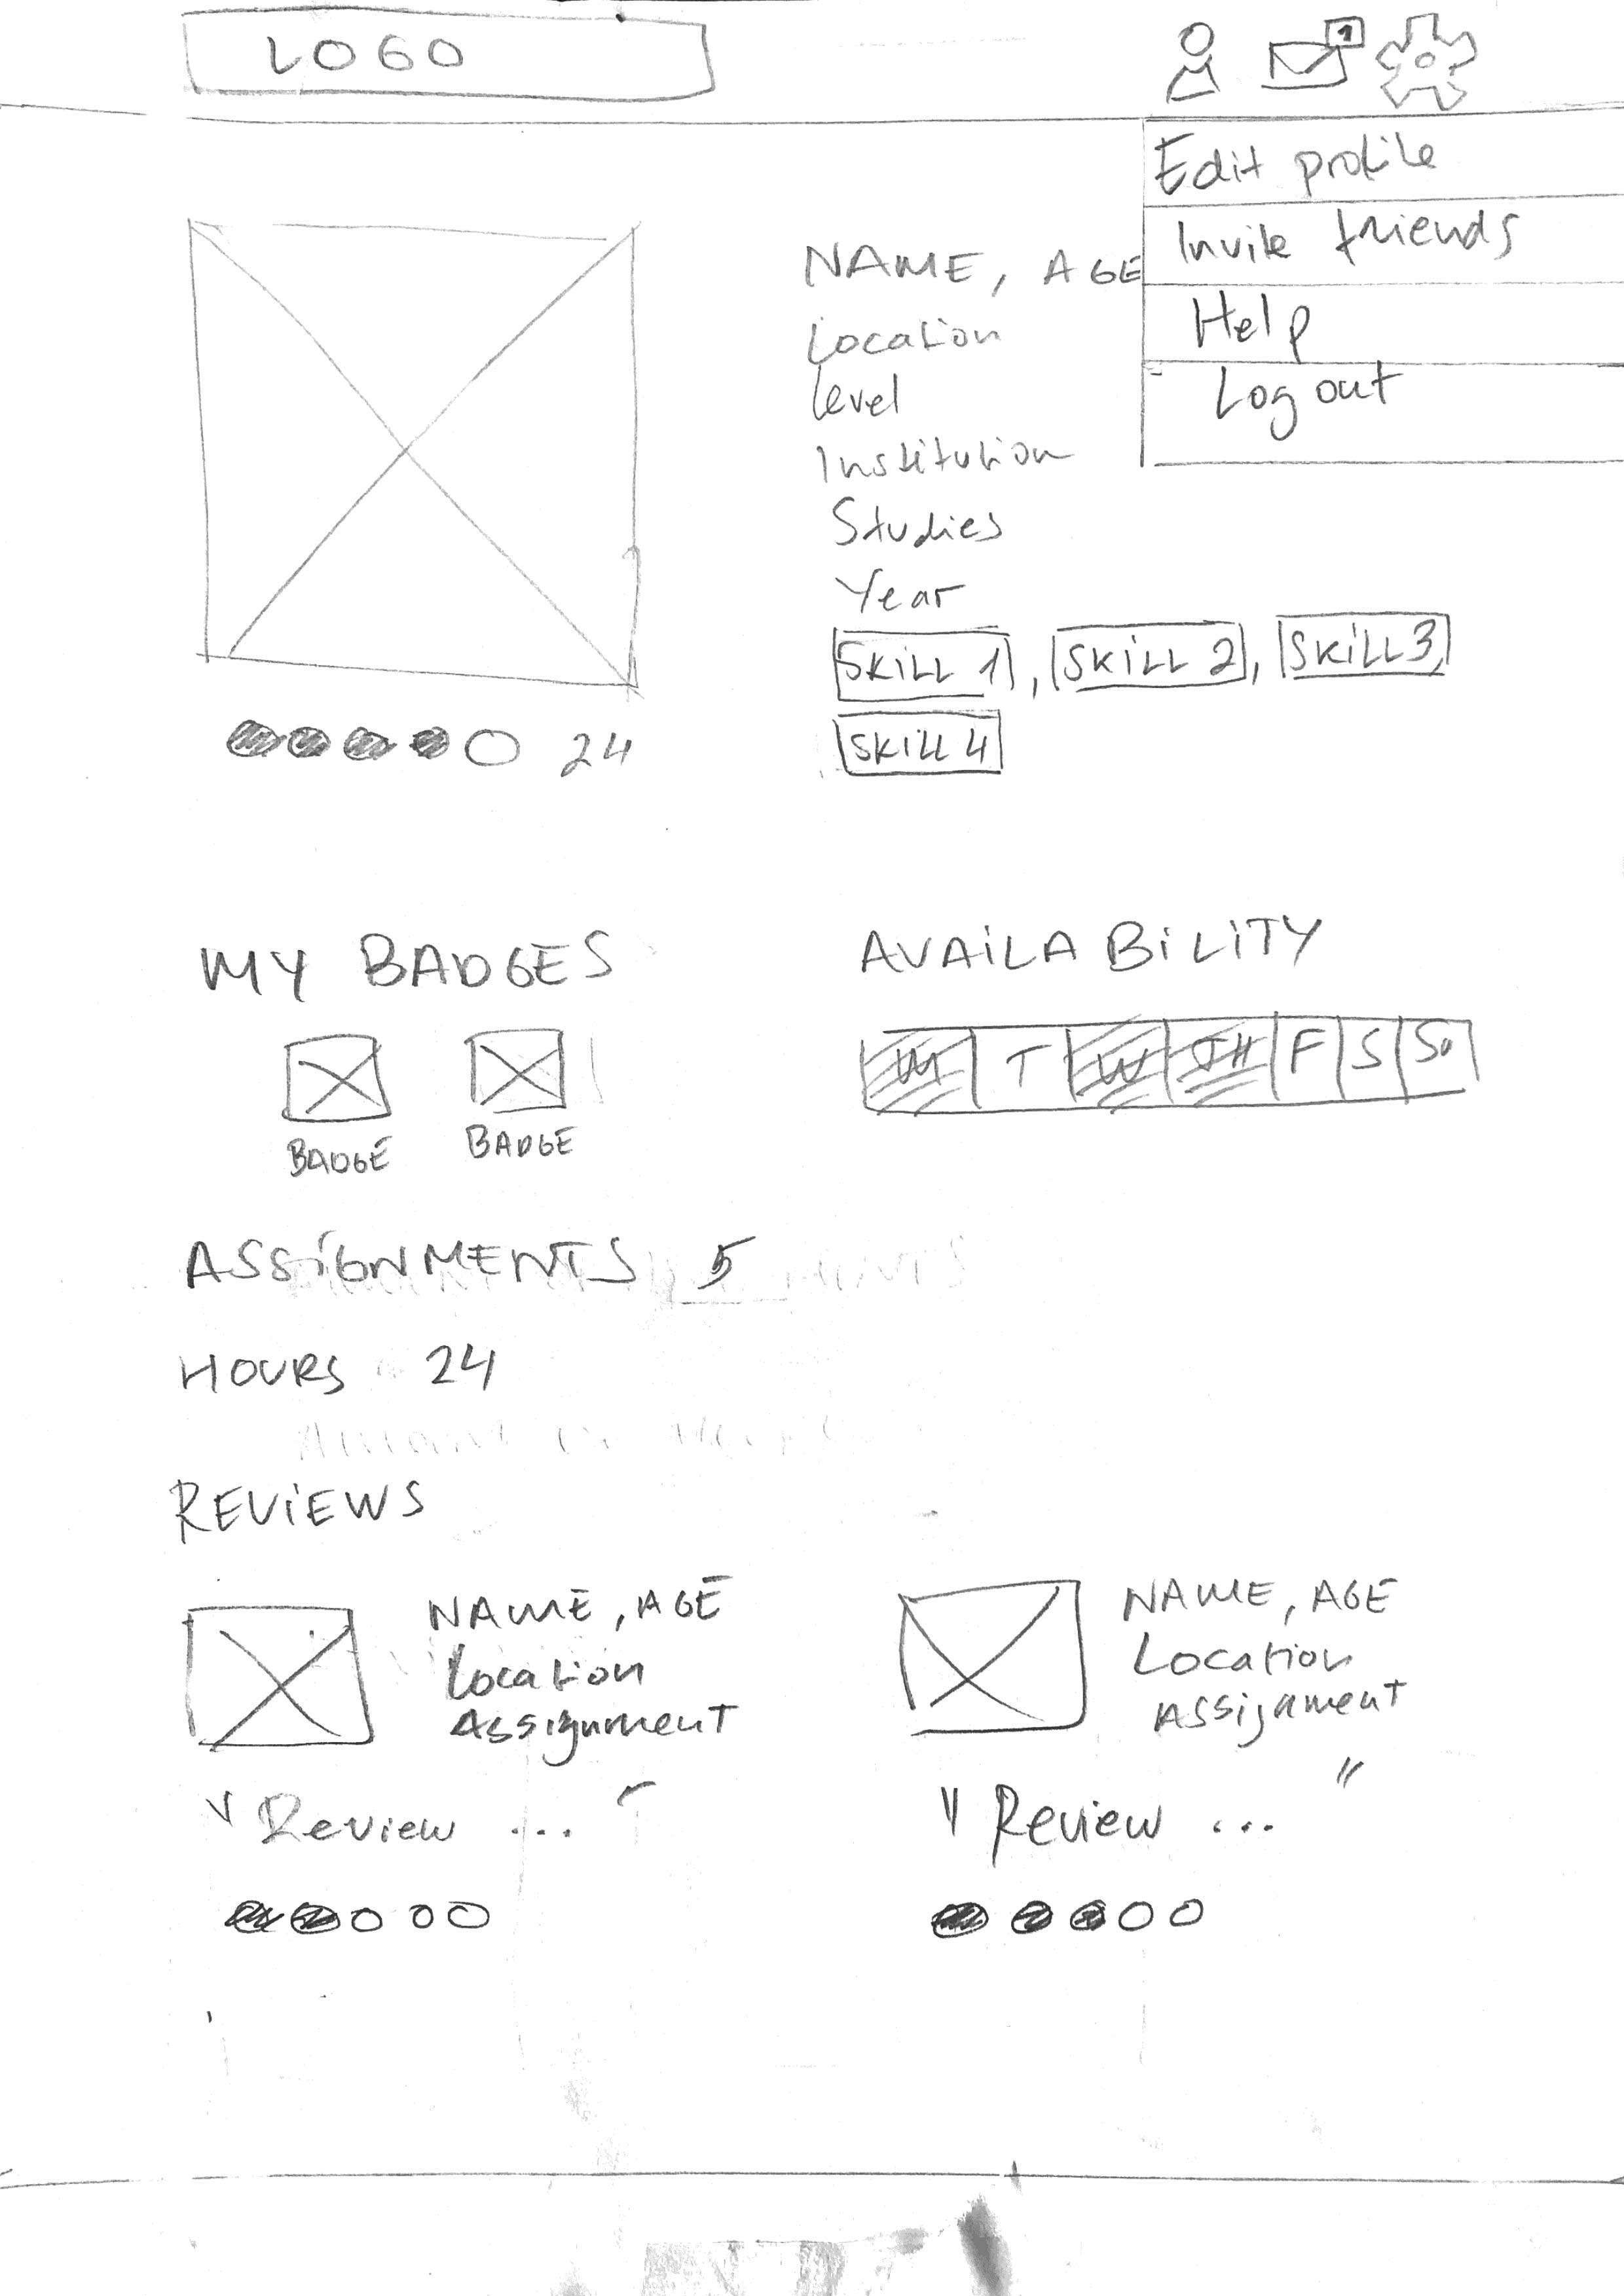 LOGO
1
Edit profile
Invite friends
Help
Log out
NAME, AGE
Location
Level
Institution
Studies
Year
SKILL 1, SKILL 2, SKILL 3,
SKILL 4
24
MY BADGES
BADGE BADGE
AVAILABILITY
M T W TH F S Su
ASSIGNMENTS 5
HOURS 24
REVIEWS
NAME, AGE
Location
Assignment
"Review ... "
NAME, AGE
Location
Assignment
"Review ... "